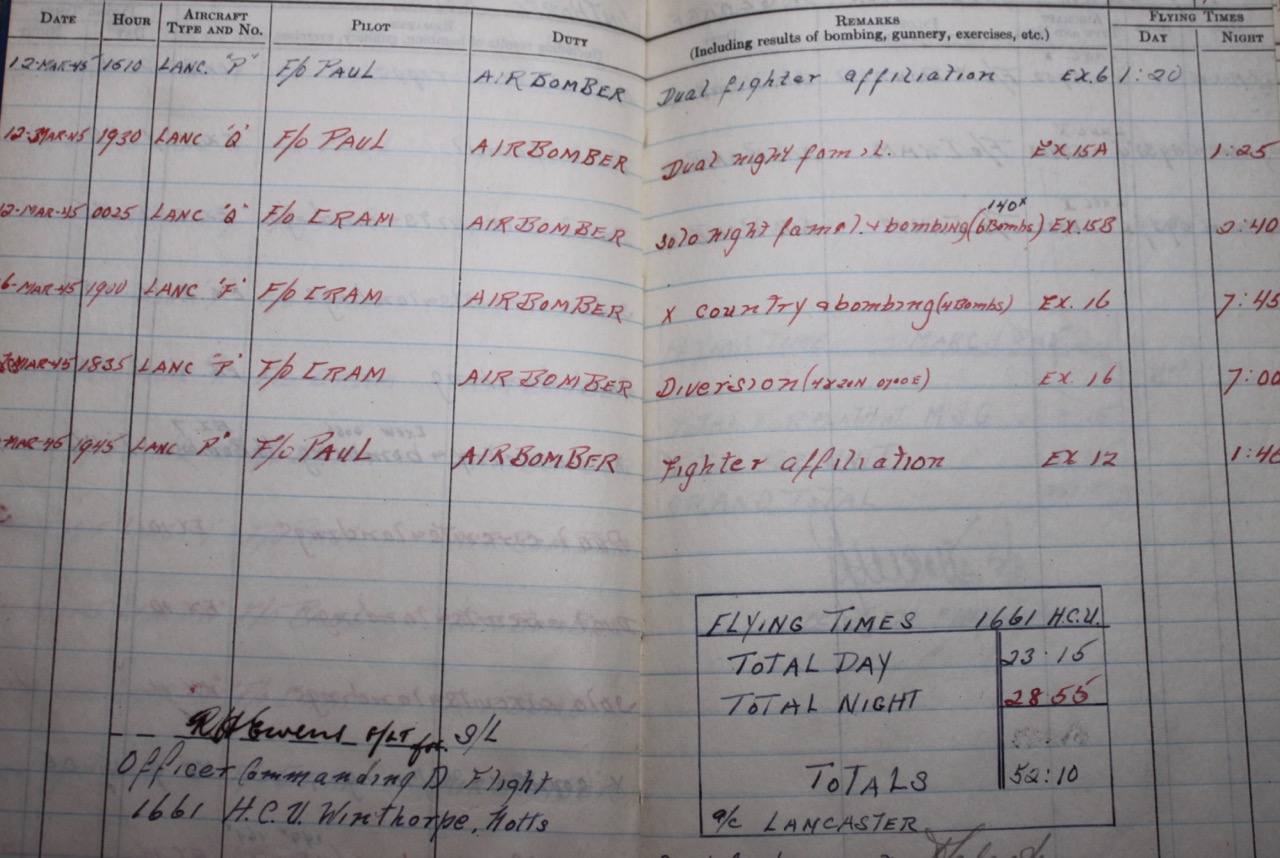 DATE HOUR AIRCRAFT TYPE AND NO. PILOT DUTY REMARKS (Including results of bombing, gunnery, exercises, etc.) FLYING TIMES DAY NIGHT
12-MAR-45 1510 LANC. "P" F/O PAUL AIR BOMBER Dual fighter affiliation EX.6 1:20
12-MAR-45 1930 LANC "Q" F/O PAUL AIR BOMBER Dual night famil. EX.15A 1:25
12-MAR-45 0025 LANC "Q" F/O CRAM AIR BOMBER solo night famil. + bombing (6 Bombs) 140x EX.15B 2:40
6-MAR-45 1900 LANC "F" F/O CRAM AIR BOMBER X country & bombing (4 Bombs) EX. 16 7:45
MAR-45 1835 LANC "P" F/O CRAM AIR BOMBER Diversion EX. 16 7:00
MAR-45 1945 LANC "P" F/O PAUL AIR BOMBER Fighter affiliation EX 12 1:40
FLYING TIMES 1661 H.C.U.
TOTAL DAY 23:15
TOTAL NIGHT 28:55
TOTALS 52:10
a/c LANCASTER
F/LT for S/L
Officer Commanding D Flight
1661 H.C.U. Winthorpe, Notts